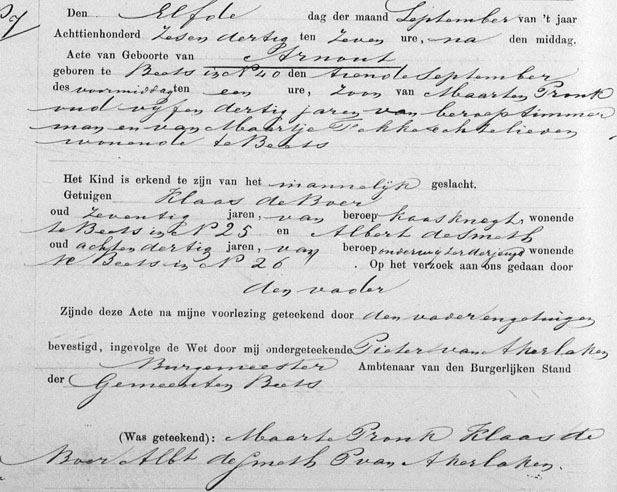 Den Elfde dag der maand September van 't jaar
Achttienhonderd Zesen dertig ten Zeven ure, na den middag.
Acte van Geboorte van Arnout
geboren te Beets in N 40 den tiende September
des voormiddag ten een ure, Zoon van Maarten Pronk
oud vyf en dertig jaren van beroep timmer
man en van Maartje Fekkes echtelieden
wonende te Beets
Het Kind is erkend te zijn van het mannelyk geslacht.
Getuigen Klaas de Boer
oud Zeventig jaren, van beroep kaasknegt, wonende
te Beets in N 25 en Albert de Smeth
oud acht en dertig jaren, van beroep onderwyzer der jeugd wonende
te Beets in N 26 . Op het verzoek aan ons gedaan door
den vader
Zijnde deze Acte na mijne voorlezing geteekend door den vader en getuigen
bevestigd, ingevolge de Wet door mij ondergeteekende Pieter van Akerlaken
Burgemeester Ambtenaar van den Burgerlijken Stand
der Gemeenten Beets
(Was geteekend): Maarte Pronk Klaas de
Boer Albt de Smeth P van Akerlaken.